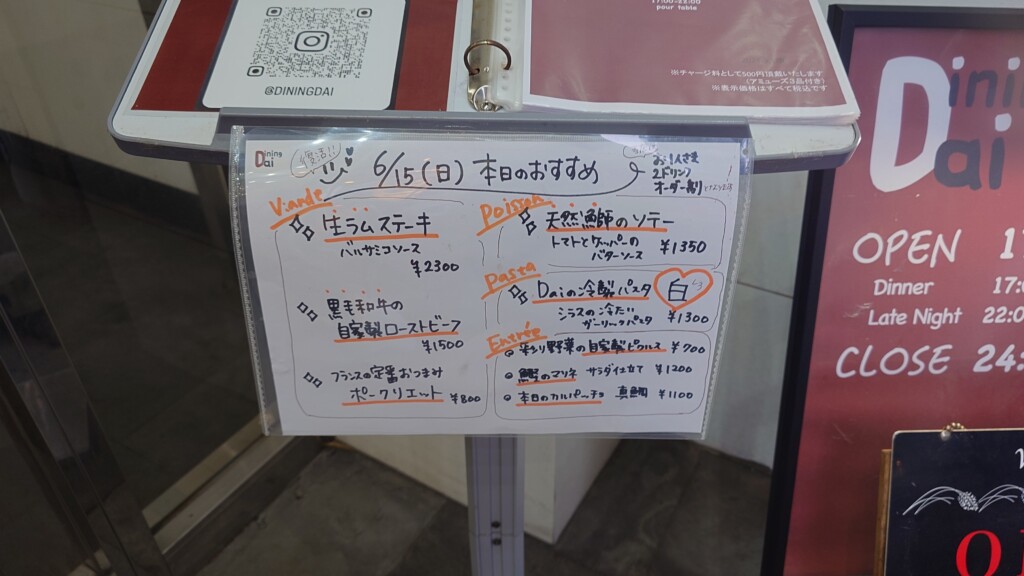 @DININGDAI
17:00-22:00
pour table
※チャージ料として500円頂戴いたします
(アミューズ3品付き)
※表示価格はすべて税込です
Dining
Dai
6/15(日) 本日のおすすめ
お1人さま
2ドリンク
オーダー制
Viande
生ラムステーキ
バルサミコソース
¥2300
黒毛和牛の
自家製ローストビーフ
¥1500
フランスの定番おつまみ
ポークリエット ¥800
Poisson
天然鰤のソテー
トマトとケッパーの
バターソース ¥1350
Pasta
Daiの冷製パスタ 白
シラスの冷たい
ガーリックパスタ ¥1300
Entrée
彩り野菜の自家製ピクルス ¥700
鰹のマリネ サラダ仕立て ¥1200
本日のカルパッチョ 真鯛 ¥1100
Dining
Dai
OPEN
Dinner 17:0
Late Night 22:0
CLOSE 24: